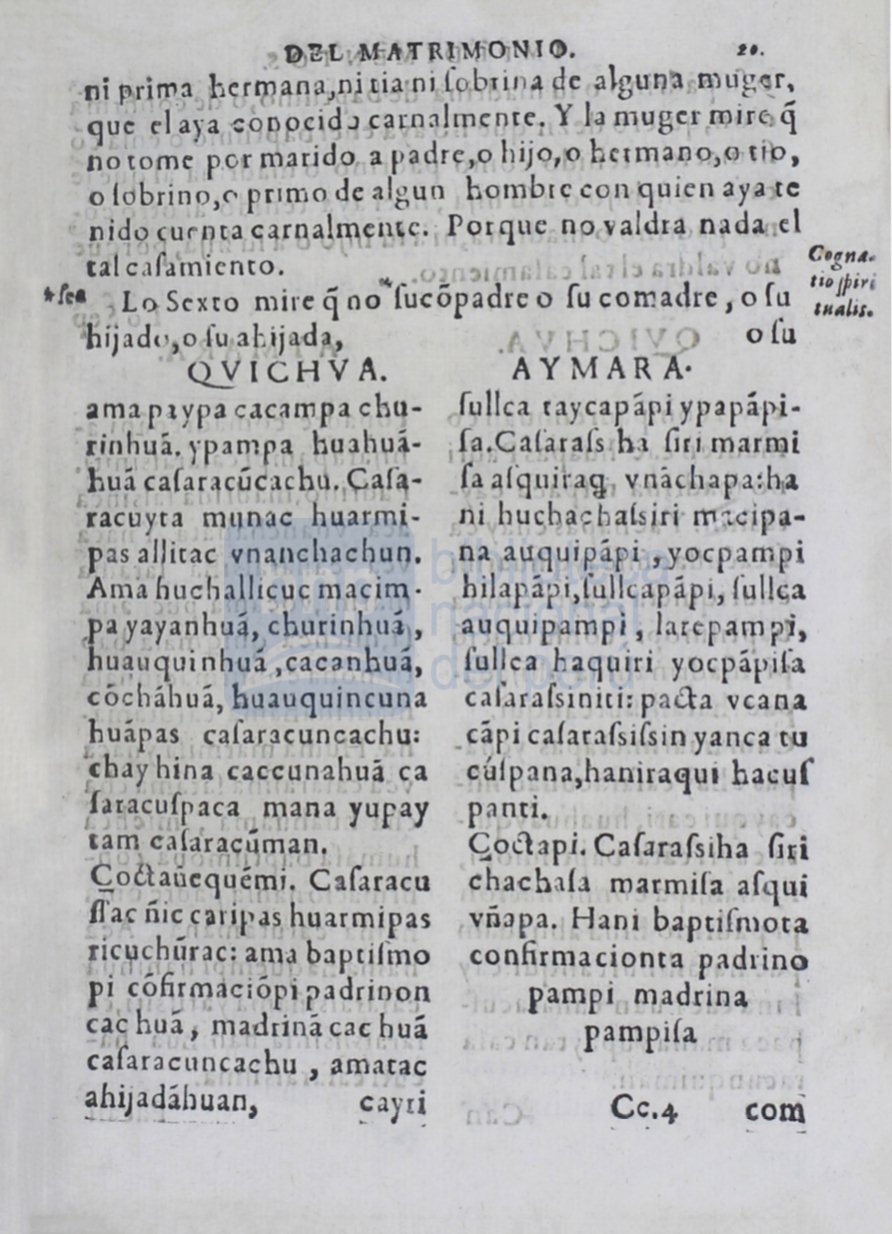 DEL MATRIMONIO. 20.
ni prima hermana,ni tia ni ſobrina de alguna muger,
que el aya conocido carnalmente. Y la muger mire q̃
no tome por marido a padre,o hijo,o hermano,o tio,
o ſobrino,o primo de algun hombre con quien aya te
nido cuenta carnalmente. Porque no valdra nada el
tal caſamiento.
Cogna-
tio ſpiri
tualis.
*ſea Lo Sexto mire q̃ no * ſu cõpadre o ſu comadre, o ſu
hijado,o ſu ahijada, o ſu
QVICHVA.
ama paypa cacampa chu-
rinhuã. ypampa huahuã-
huã caſaracũcachu. Caſa-
racuyta munac huarmi-
pas allitac vnanchachun.
Ama huchallicuc macim-
pa yayanhuã, churinhuã,
huauquinhuã,cacanhuã,
cõchãhuã, huauquincuna
huãpas caſaracuncachu:
chay hina caccunahuã ca
ſaracuſpaca mana yupay
tam caſaracũman.
Çoctaũequẽmi. Caſaracu
ſſac ñic caripas huarmipas
ricuchũrac: ama baptiſmo
pi cõfirmaciõpi padrinon
cac huã, madrinã cac huã
caſaracuncachu, amatac
ahijadãhuan, cayri
AYMARA.
ſullca taycapãpi ypapãpi-
ſa.Caſaraſs ha ſiri marmi
ſa aſquiraq, vnãchapa:ha
ni huchachaſsiri macipa-
na auquipãpi, yocpampi
hilapãpi,ſullcapãpi, ſullca
auquipampi, laripampi,
ſullca haquiri yocpãpiſa
caſaraſsiniti: pacta vcana
cãpi caſaraſsiſsin yanca tu
cuſpana,haniraqui hacuſ
panti.
Çoctapi. Caſaraſsiha ſiri
chachaſa marmiſa aſqui
vñapa. Hani baptiſmota
confirmacionta padrino
pampi madrina
pampiſa
Cc.4 com
biblioteca
nacional
del perú